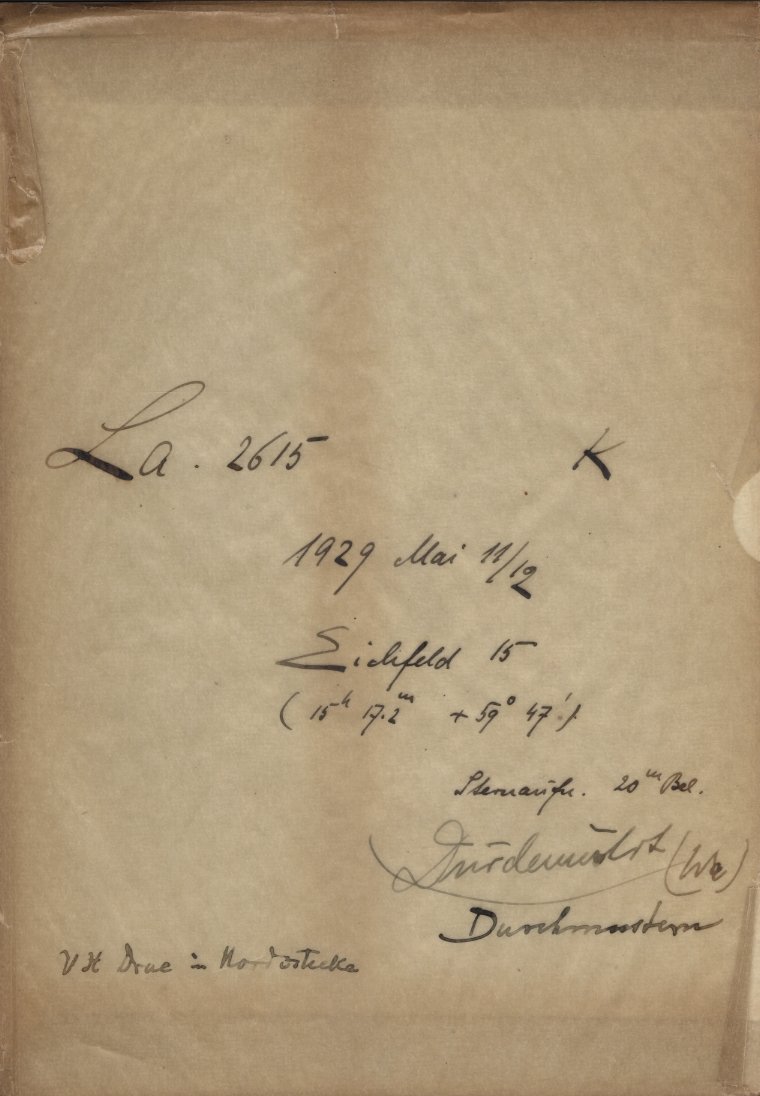 La. 2615 K
1929 Mai 11/12
Eichfeld 15
(15ʰ 17.2ᵐ +59° 47')
Sternaufn. 20ᵐ Bel.
Durchmustern
VH Drac in Nordostecke